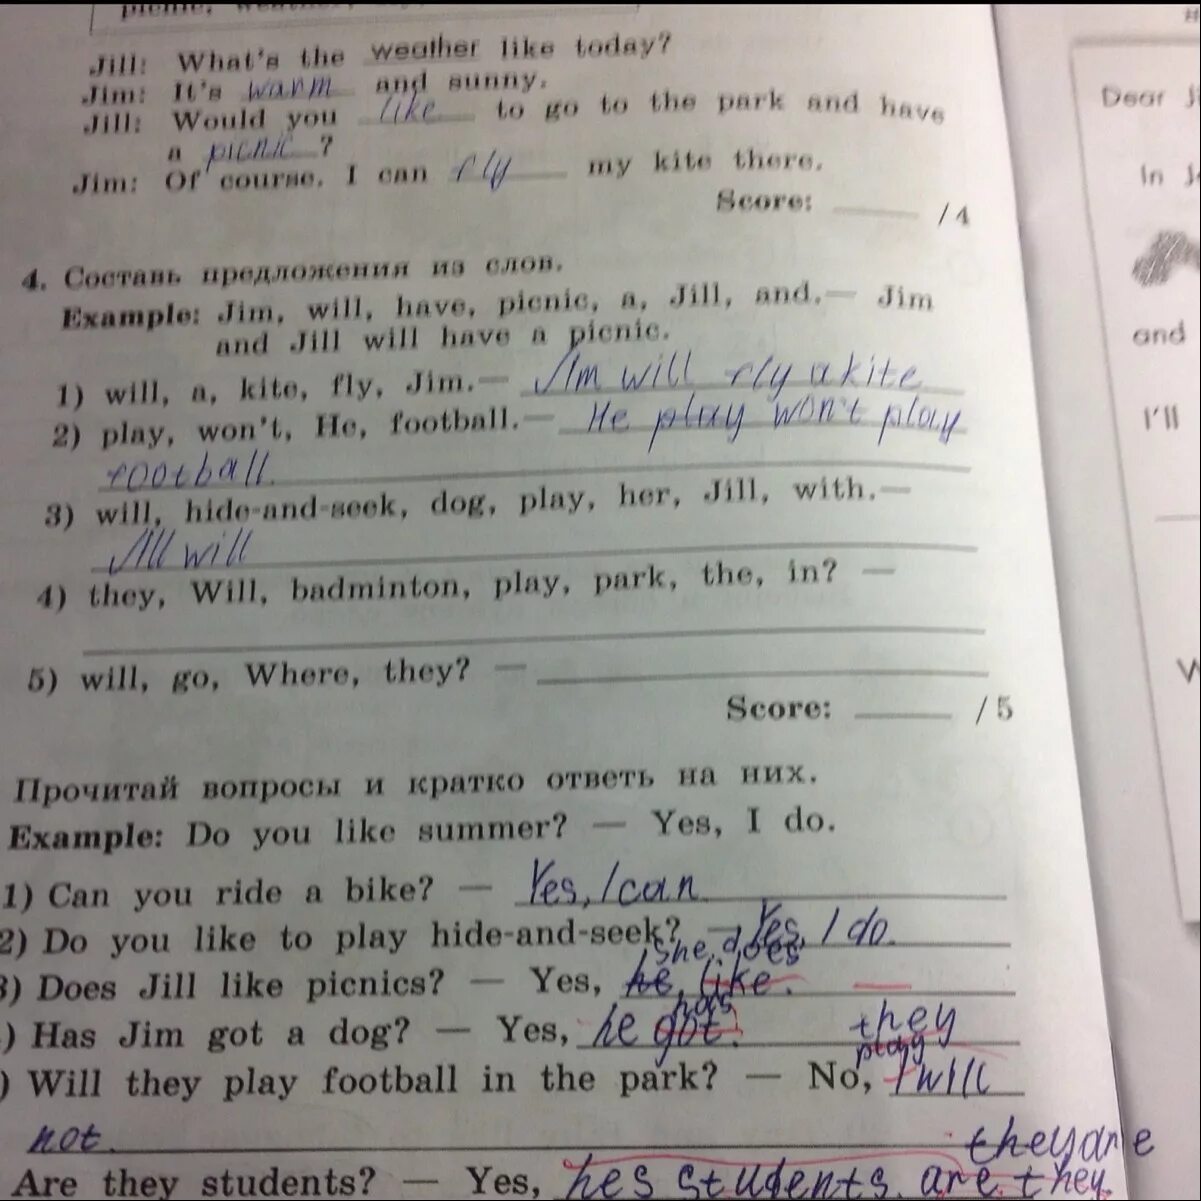 Jill: What's the weather like today?
Jim: It's warm and sunny.
Jill: Would you like to go to the park and have
a picnic ?
Jim: Of course. I can fly my kite there.
Score: /4
4. Составь предложения из слов.
Example: Jim, will, have, picnic, a, Jill, and.— Jim
and Jill will have a picnic.
1) will, a, kite, fly, Jim.— Jim will fly a kite
2) play, won't, He, football.— He play won't play
football.
3) will, hide-and-seek, dog, play, her, Jill, with.—
Jill will
4) they, Will, badminton, play, park, the, in? —
5) will, go, Where, they? —
Score: /5
Прочитай вопросы и кратко ответь на них.
Example: Do you like summer? — Yes, I do.
1) Can you ride a bike? — Yes, I can
2) Do you like to play hide-and-seek? — Yes, I do.
she does
3) Does Jill like picnics? — Yes, he, like.
has
) Has Jim got a dog? — Yes, he got. they
play
) Will they play football in the park? — No, I will
not.
they are
Are they students? — Yes, hes students are they.
Dear
In
and
I'll